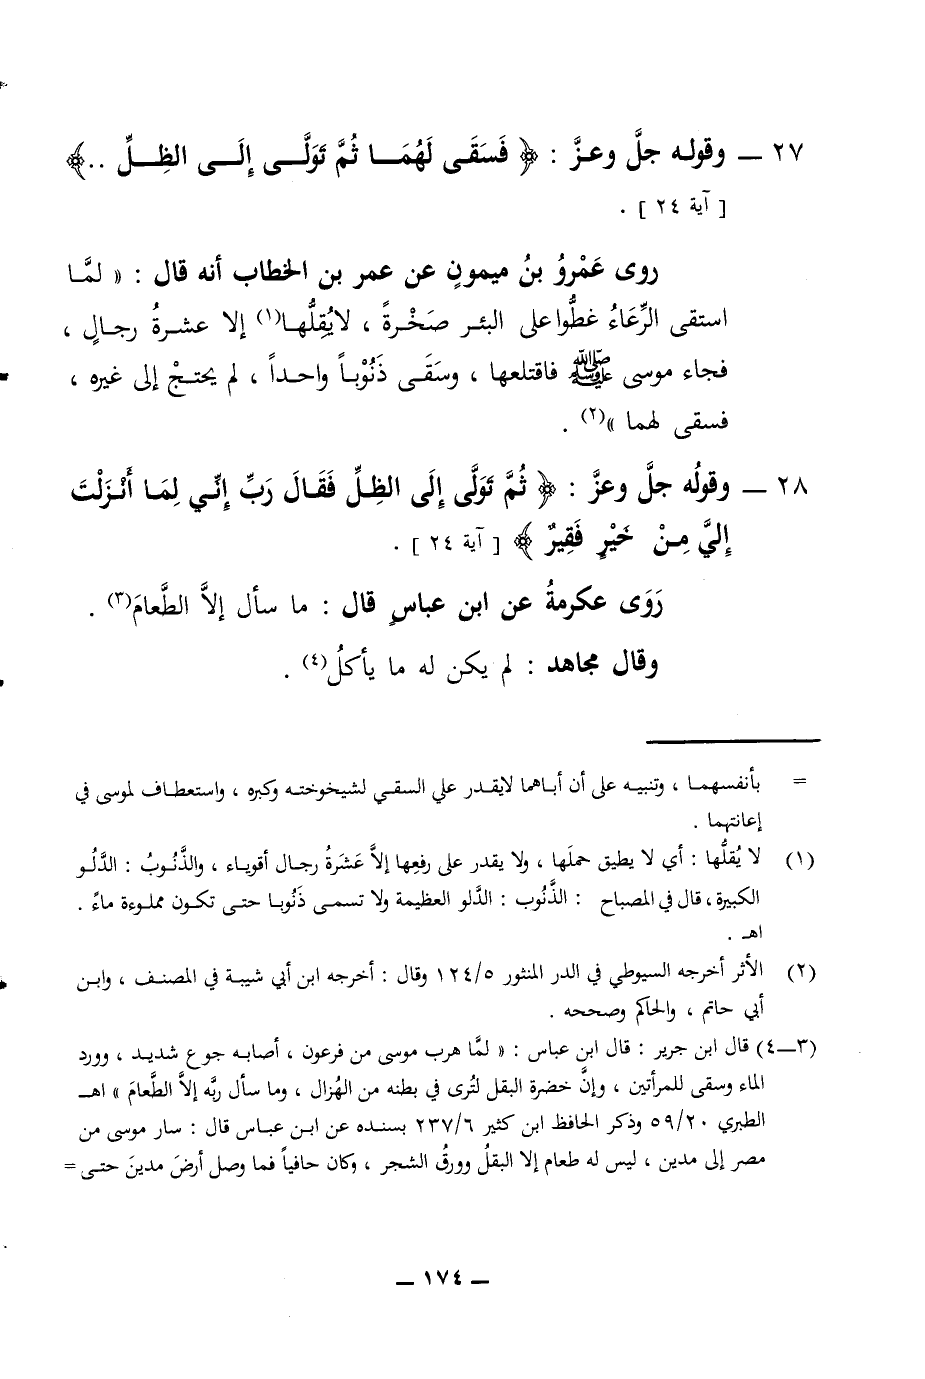 ٢٧ ــ وقوله جلَّ وعزَّ : ﴿ فَسَقَى لَهُمَـا ثُمَّ تَوَلَّـى إِلَـى الظِـلِّ ..﴾
[ آية ٢٤ ] .
روى عَمْروُ بنُ ميمونٍ عن عمر بن الخطاب أنه قال : « لمَّا
استقى الرِّعَاءُ غطُّوا على البئر صَخْرةً ، لايُقِلُّها(١) إلا عشرةُ رجالٍ ،
فجاء موسى ﷺ فاقتلعها ، وسَقَى ذَنُوْباً واحداً ، لم يحتجْ إلى غيره ،
فسقى لهما »(٢) .
٢٨ ــ وقولُه جلَّ وعزَّ : ﴿ ثُمَّ تَوَلَّى إِلَى الظِلِّ فَقَالَ رَبِّ إِنِّي لِمَا أَنْزَلْتَ
إِليَّ مِنْ خَيْرٍ فَقِيرٌ ﴾ [ آية ٢٤ ] .
رَوَى عكرمةُ عن ابن عباسٍ قال : ما سأل إلاَّ الطَّعامَ(٣) .
وقال مجاهد : لم يكن له ما يأكلُ(٤) .
= بأنفسهما ، وتنبيه على أن أباهما لايقدر علي السقي لشيخوخته وكبره ، واستعطاف لموسى في
إعانتهما .
(١) لا يُقلُّها : أي لا يطيق حملَها ، ولا يقدر على رفعِها إلاَّ عَشَرةُ رجال أقوياء ، والذَّنُوبُ : الدَّلُو
الكبيرة ، قال في المصباح : الذَّنُوب : الدَّلو العظيمة ولا تسمى ذَنُوبا حتى تكون مملوءة ماءً .
اهـ .
(٢) الأثر أخرجه السيوطي في الدر المنثور ١٢٤/٥ وقال : أخرجه ابن أبي شيبة في المصنف ، وابن
أبي حاتم ، والحاكم وصححه .
(٣ــ٤) قال ابن جرير : قال ابن عباس : « لمَّا هرب موسى من فرعون ، أصابه جوع شديد ، وورد
الماء وسقى للمرأتين ، وإنَّ خضرة البقل لتُرى في بطنه من الهُزال ، وما سأل ربَّه إلاَّ الطَّعامَ » اهـ
الطبري ٥٩/٢٠ وذكر الحافظ ابن كثير ٢٣٧/٦ بسنده عن ابن عباس قال : سار موسى من
مصر إلى مدين ، ليس له طعام إلا البقلُ وورقُ الشجر ، وكان حافياً فما وصل أرضَ مدينَ حتى =
ــ ١٧٤ ــ